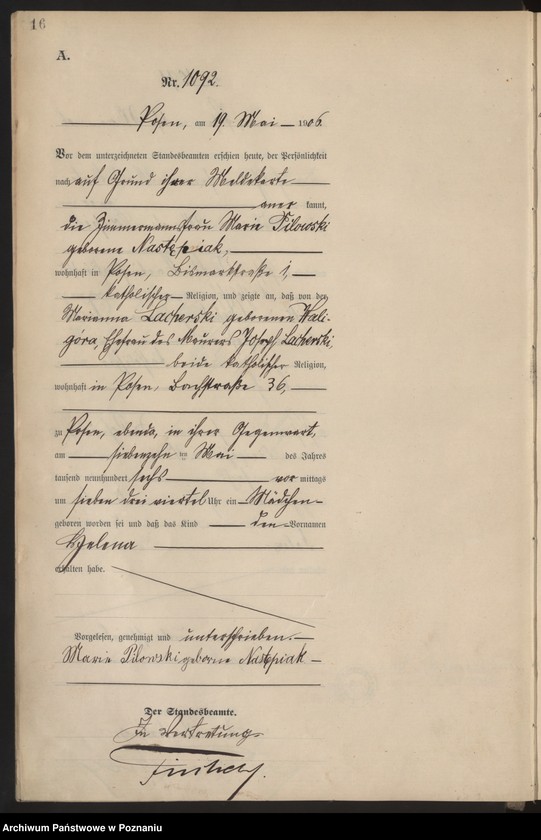 16
A.
Nr. 1092.
Posen, am 19. Mai 1906.
Vor dem unterzeichneten Standesbeamten erschien heute, der Persönlichkeit
nach auf Grund ihrer Meldekarte
aner kannt,
die Zimmermannsfrau Marie Pilowski
geborene Następiak,
wohnhaft in Posen, Bismarkstraße 1
katholischer Religion, und zeigte an, daß von der
Marianna Lacherski geborenen Wali-
góra, Ehefrau des Maurers Joseph Lacherski,
beide katholischer Religion,
wohnhaft in Posen, Bachstraße 36,
zu Posen, ebenda, in ihrer Gegenwart,
am siebenzehn ten Mai des Jahres
tausend neunhundert sechs vor mittags
um sieben drei viertel Uhr ein Mädchen
geboren worden sei und daß das Kind den Vornamen
Helena
erhalten habe.
Vorgelesen, genehmigt und unterschrieben.
Marie Pilowski geborne Następiak
Der Standesbeamte.
In Vertretung.
Archiwum Państwowe w Poznaniu